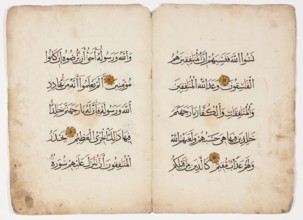 نسوا الله فنسيهم إن المنفقين هم
الفاسقون وعد الله المنفقين
والمنفقت والكفار نار جهنم
خلدين فيها هي حسبهم ولعنهم الله
ولهم عذاب مقيم كالذين من قبلكم
والله ورسوله أحق أن يرضوه إن كانوا
مؤمنين ألم يعلموا أنه من يحادد
الله ورسوله فأن له نار جهنم خلدا
فيها ذلك الخزي العظيم يحذر
المنفقون أن تنزل عليهم سورة